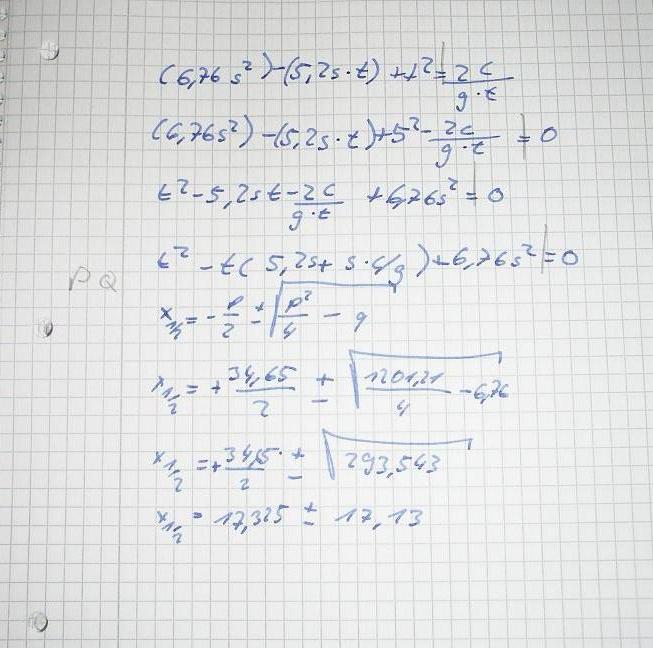 (6,76 s²) - (5,2s · t) + t² = 2c / g·t
(6,76s²) - (5,2s · t) + 5² - 2c / g·t = 0
t² - 5,2st - 2c / g·t + 6,76s² = 0
t² - t( 5,2s + s·c/g ) + 6,76s² = 0
PQ
x₁/₂ = - p/2 ± √ p²/4 - q
x₁/₂ = + 34,65/2 ± √ 1201,21/4 - 6,76
x₁/₂ = + 34,65/2 ± √ 293,543
x₁/₂ = 17,325 ± 17,13